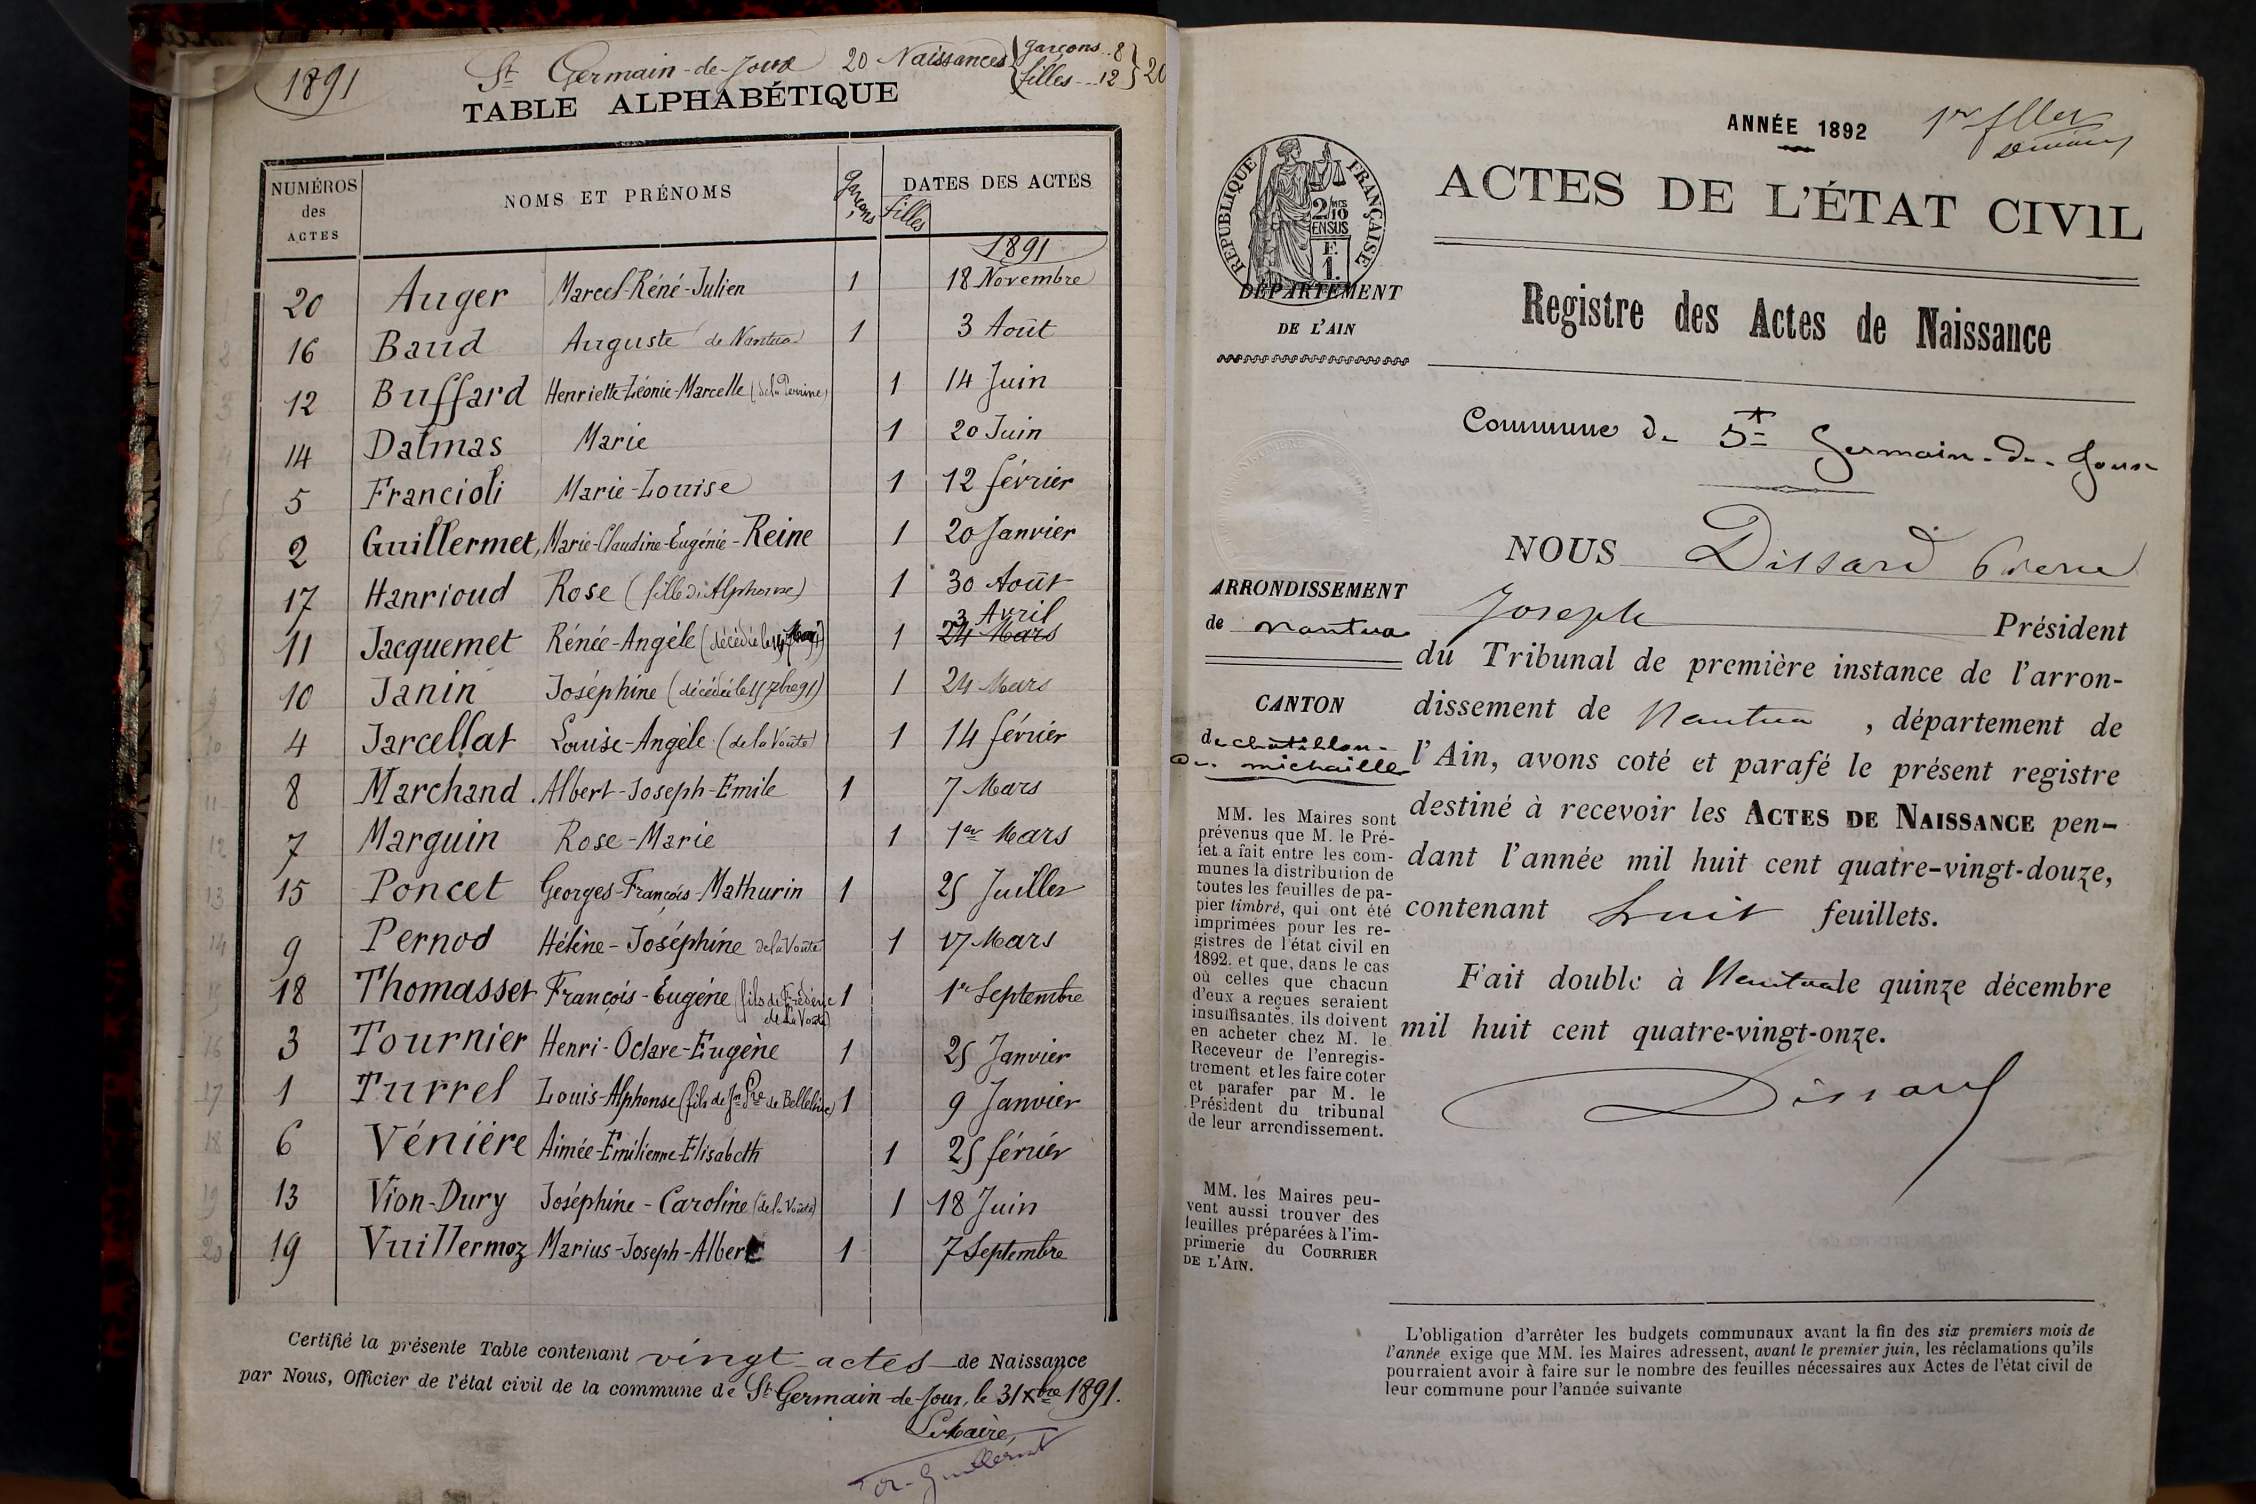 1891
St Germain-de-Joux 20 Naissances { garçons .. 8
filles --- 12 } 20
TABLE ALPHABÉTIQUE
NUMÉROS
des
ACTES
NOMS ET PRÉNOMS
garçons
filles
DATES DES ACTES
1891
20 Auger Marcel-Réné-Julien 1 18 Novembre
16 Baud Auguste de Nantua 1 3 Août
12 Buffard Henriette-Léonie-Marcelle (de la Perrine) 1 14 Juin
14 Dalmas Marie 1 20 Juin
5 Francioli Marie-Louise 1 12 février
2 Guillermet, Marie-Claudine-Eugénie-Reine 1 20 Janvier
17 Hanrioud Rose (fille d'Alphonse) 1 30 Août
3 Avril
11 Jacquemet Rénée-Angèle (décédée le 1 24 Mars
10 Janin Joséphine (décédée le 15 7bre 91) 1 24 Mars
4 Jarcellat Louise-Angèle (de la Voûte) 1 14 février
8 Marchand Albert-Joseph-Emile 1 7 Mars
7 Marguin Rose-Marie 1 1er Mars
15 Poncet Georges-François-Mathurin 1 25 Juillet
9 Pernod Hélène-Joséphine de la Voûte 1 17 Mars
18 Thomasset François-Eugène (fils de Frédéric 1 1er Septembre
de la Voute)
3 Tournier Henri-Octave-Eugène 1 25 Janvier
1 Turrel Louis-Alphonse (fils de Jn Pre de Belleleine) 1 9 Janvier
6 Vénière Aimée-Emilienne-Elisabeth 1 25 février
13 Vion-Dury Joséphine-Caroline (de la Voûte) 1 18 Juin
19 Vuillermoz Marius-Joseph-Albert 1 7 Septembre
Certifié la présente Table contenant vingt actes de Naissance
par Nous, Officier de l'état civil de la commune de St Germain-de-Joux, le 31 Xbre 1891.
Le Maire,
Guillermet
ANNÉE 1892
1er fllet
RÉPUBLIQUE FRANÇAISE
2/10
EN SUS
F.
1.
ACTES DE L'ÉTAT CIVIL
DÉPARTEMENT
DE L'AIN
Registre des Actes de Naissance
Commune de St Germain-de-Joux
NOUS Dissard Pierre
Joseph Président
ARRONDISSEMENT
de Nantua
CANTON
de Châtillon-
de michaille
du Tribunal de première instance de l'arron-
dissement de Nantua , département de
l'Ain, avons coté et parafé le présent registre
destiné à recevoir les ACTES DE NAISSANCE pen-
dant l'année mil huit cent quatre-vingt-douze,
contenant huit feuillets.
Fait double à Nantua le quinze décembre
mil huit cent quatre-vingt-onze.
Dissard
MM. les Maires sont
prévenus que M. le Pré-
fet a fait entre les com-
munes la distribution de
toutes les feuilles de pa-
pier timbré, qui ont été
imprimées pour les re-
gistres de l'état civil en
1892. et que, dans le cas
où celles que chacun
d'eux a reçues seraient
insuffisantes, ils doivent
en acheter chez M. le
Receveur de l'enregis-
trement et les faire coter
et parafer par M. le
Président du tribunal
de leur arrondissement.
MM. les Maires peu-
vent aussi trouver des
feuilles préparées à l'im-
primerie du COURRIER
DE L'AIN.
L'obligation d'arrêter les budgets communaux avant la fin des six premiers mois de
l'année exige que MM. les Maires adressent, avant le premier juin, les réclamations qu'ils
pourraient avoir à faire sur le nombre des feuilles nécessaires aux Actes de l'état civil de
leur commune pour l'année suivante